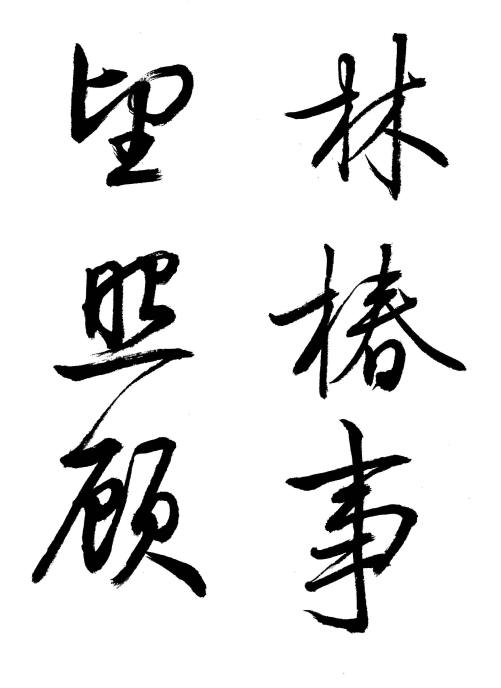 林椿事
望照顾